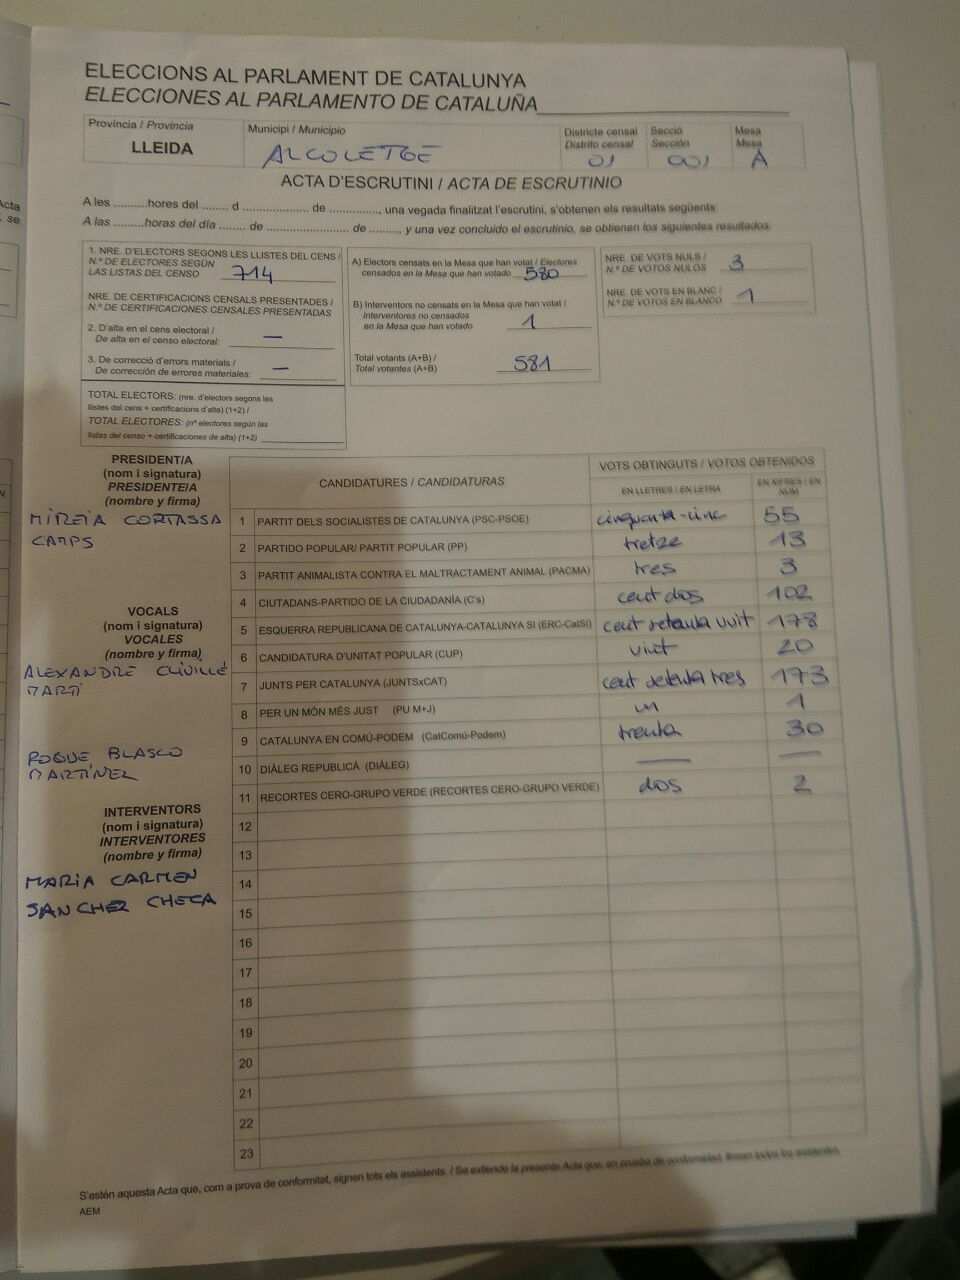 ELECCIONS AL PARLAMENT DE CATALUNYA
ELECCIONES AL PARLAMENTO DE CATALUÑA
Província / Provincia
LLEIDA
Municipi / Municipio
ALCOLETGE
Districte censal
Distrito censal
01
Secció
Sección
001
Mesa
Mesa
A
ACTA D'ESCRUTINI / ACTA DE ESCRUTINIO
A les ..........hores del ........ d .................... de ..............., una vegada finalitzat l'escrutini, s'obtenen els resultats següents
A las ..........horas del día ........ de .............................. de ........., y una vez concluido el escrutinio, se obtienen los siguientes resultados:
1. NRE. D'ELECTORS SEGONS LES LLISTES DEL CENS /
N.º DE ELECTORES SEGÚN
LAS LISTAS DEL CENSO 714
NRE. DE CERTIFICACIONS CENSALS PRESENTADES /
N.º DE CERTIFICACIONES CENSALES PRESENTADAS
2. D'alta en el cens electoral /
De alta en el censo electoral: —
3. De correcció d'errors materials /
De corrección de errores materiales: —
TOTAL ELECTORS: (nre. d'electors segons les
llistes del cens + certificacions d'alta) (1+2) /
TOTAL ELECTORES: (nº electores según las
listas del censo + certificaciones de alta) (1+2)
A) Electors censats en la Mesa que han votat / Electores
censados en la Mesa que han votado 580
B) Interventors no censats en la Mesa que han votat /
Interventores no censados
en la Mesa que han votado 1
Total votants (A+B) /
Total votantes (A+B) 581
NRE. DE VOTS NULS /
N.º DE VOTOS NULOS 3
NRE. DE VOTS EN BLANC /
N.º DE VOTOS EN BLANCO 1
PRESIDENT/A
(nom i signatura)
PRESIDENTE/A
(nombre y firma)
MIREIA CORTASSA
CAMPS
VOCALS
(nom i signatura)
VOCALES
(nombre y firma)
ALEXANDRE CLIVILLÉ
MARTÍ
ROQUE BLASCO
MARTÍNEZ
INTERVENTORS
(nom i signatura)
INTERVENTORES
(nombre y firma)
MARIA CARMEN
SANCHEZ CHECA
CANDIDATURES / CANDIDATURAS
VOTS OBTINGUTS / VOTOS OBTENIDOS
EN LLETRES / EN LETRA
EN XIFRES / EN NÚM
1 PARTIT DELS SOCIALISTES DE CATALUNYA (PSC-PSOE) cinquanta-cinc 55
2 PARTIDO POPULAR/ PARTIT POPULAR (PP) tretze 13
3 PARTIT ANIMALISTA CONTRA EL MALTRACTAMENT ANIMAL (PACMA) tres 3
4 CIUTADANS-PARTIDO DE LA CIUDADANÍA (C's) cent dos 102
5 ESQUERRA REPUBLICANA DE CATALUNYA-CATALUNYA SI (ERC-CatSí) cent setanta vuit 178
6 CANDIDATURA D'UNITAT POPULAR (CUP) vint 20
7 JUNTS PER CATALUNYA (JUNTSxCAT) cent setanta tres 173
8 PER UN MÓN MÉS JUST (PU M+J) un 1
9 CATALUNYA EN COMÚ-PODEM (CatComú-Podem) trenta 30
10 DIÀLEG REPUBLICÀ (DIÀLEG) — —
11 RECORTES CERO-GRUPO VERDE (RECORTES CERO-GRUPO VERDE) dos 2
12
13
14
15
16
17
18
19
20
21
22
23
S'estén aquesta Acta que, com a prova de conformitat, signen tots els assistents. / Se extiende la presente Acta que, en prueba de conformidad, firman todos los asistentes.
AEM